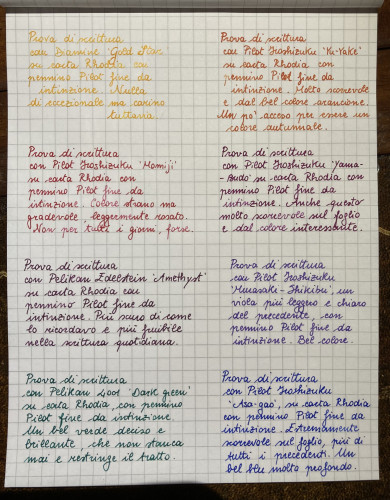 Prova di scrittura
con Diamine 'Gold Star'
su carta Rhodia con
pennino Pilot fine da
intinzione. Nulla
di eccezionale ma carino
tuttavia.
Prova di scrittura
con Pilot Iroshizuku 'Yu-Yake'
su carta Rhodia con
pennino Pilot fine da
intinzione. Molto scorrevole
e dal bel colore arancione.
Un po' acceso per essere un
colore autunnale.
Prova di scrittura
con Pilot Iroshizuku 'Momiji'
su carta Rhodia con
pennino Pilot fine da
intinzione. Colore strano ma
gradevole leggermente rosato.
Non per tutti i giorni, forse.
Prova di scrittura
con Pilot Iroshizuku 'Yama-
-budo' su carta Rhodia con
pennino Pilot fine da
intinzione. Anche questo
molto scorrevole sul foglio
e dal colore interessante.
Prova di scrittura
con Pelikan Edelstein 'Amethyst'
su carta Rhodia con
pennino Pilot fine da
intinzione. Più scuro di come
lo ricordavo e più fruibile
nella scrittura quotidiana.
Prova di scrittura
con Pilot Iroshizuku
'Murasaki-Shikibu', un
viola più leggero e chiaro
del precedente, con
pennino Pilot fine da
intinzione. Bel colore.
Prova di scrittura
con Pelikan 4001 'Dark green'
su carta Rhodia, con pennino
Pilot fine da intinzione.
Un bel verde deciso e
brillante, che non stanca
mai e restringe il tratto.
Prova di scrittura
con Pilot Iroshizuku
'Asa-gao', su carta Rhodia
con pennino Pilot fine da
intinzione. Estremamente
scorrevole sul foglio, più di
tutti i precedenti. Un
bel blu molto profondo.